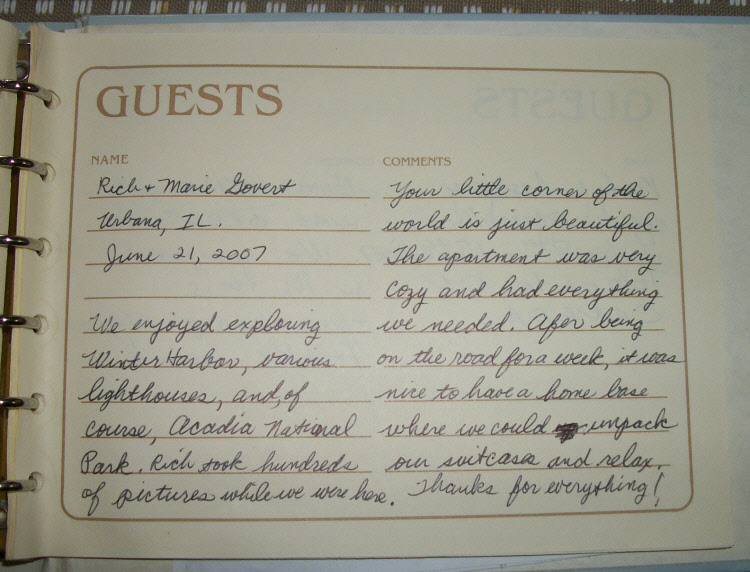 GUESTS
NAME
Rich + Marie Govert
Urbana, IL.
June 21, 2007
We enjoyed exploring
Winter Harbor, various
lighthouses, and, of
course, Acadia National
Park. Rich took hundreds
of pictures while we were here.
COMMENTS
Your little corner of the
world is just beautiful.
The apartment was very
cozy and had everything
we needed. Afer being
on the road for a week, it was
nice to have a home base
where we could unpack
our suitcases and relax.
Thanks for everything!
GUESTS